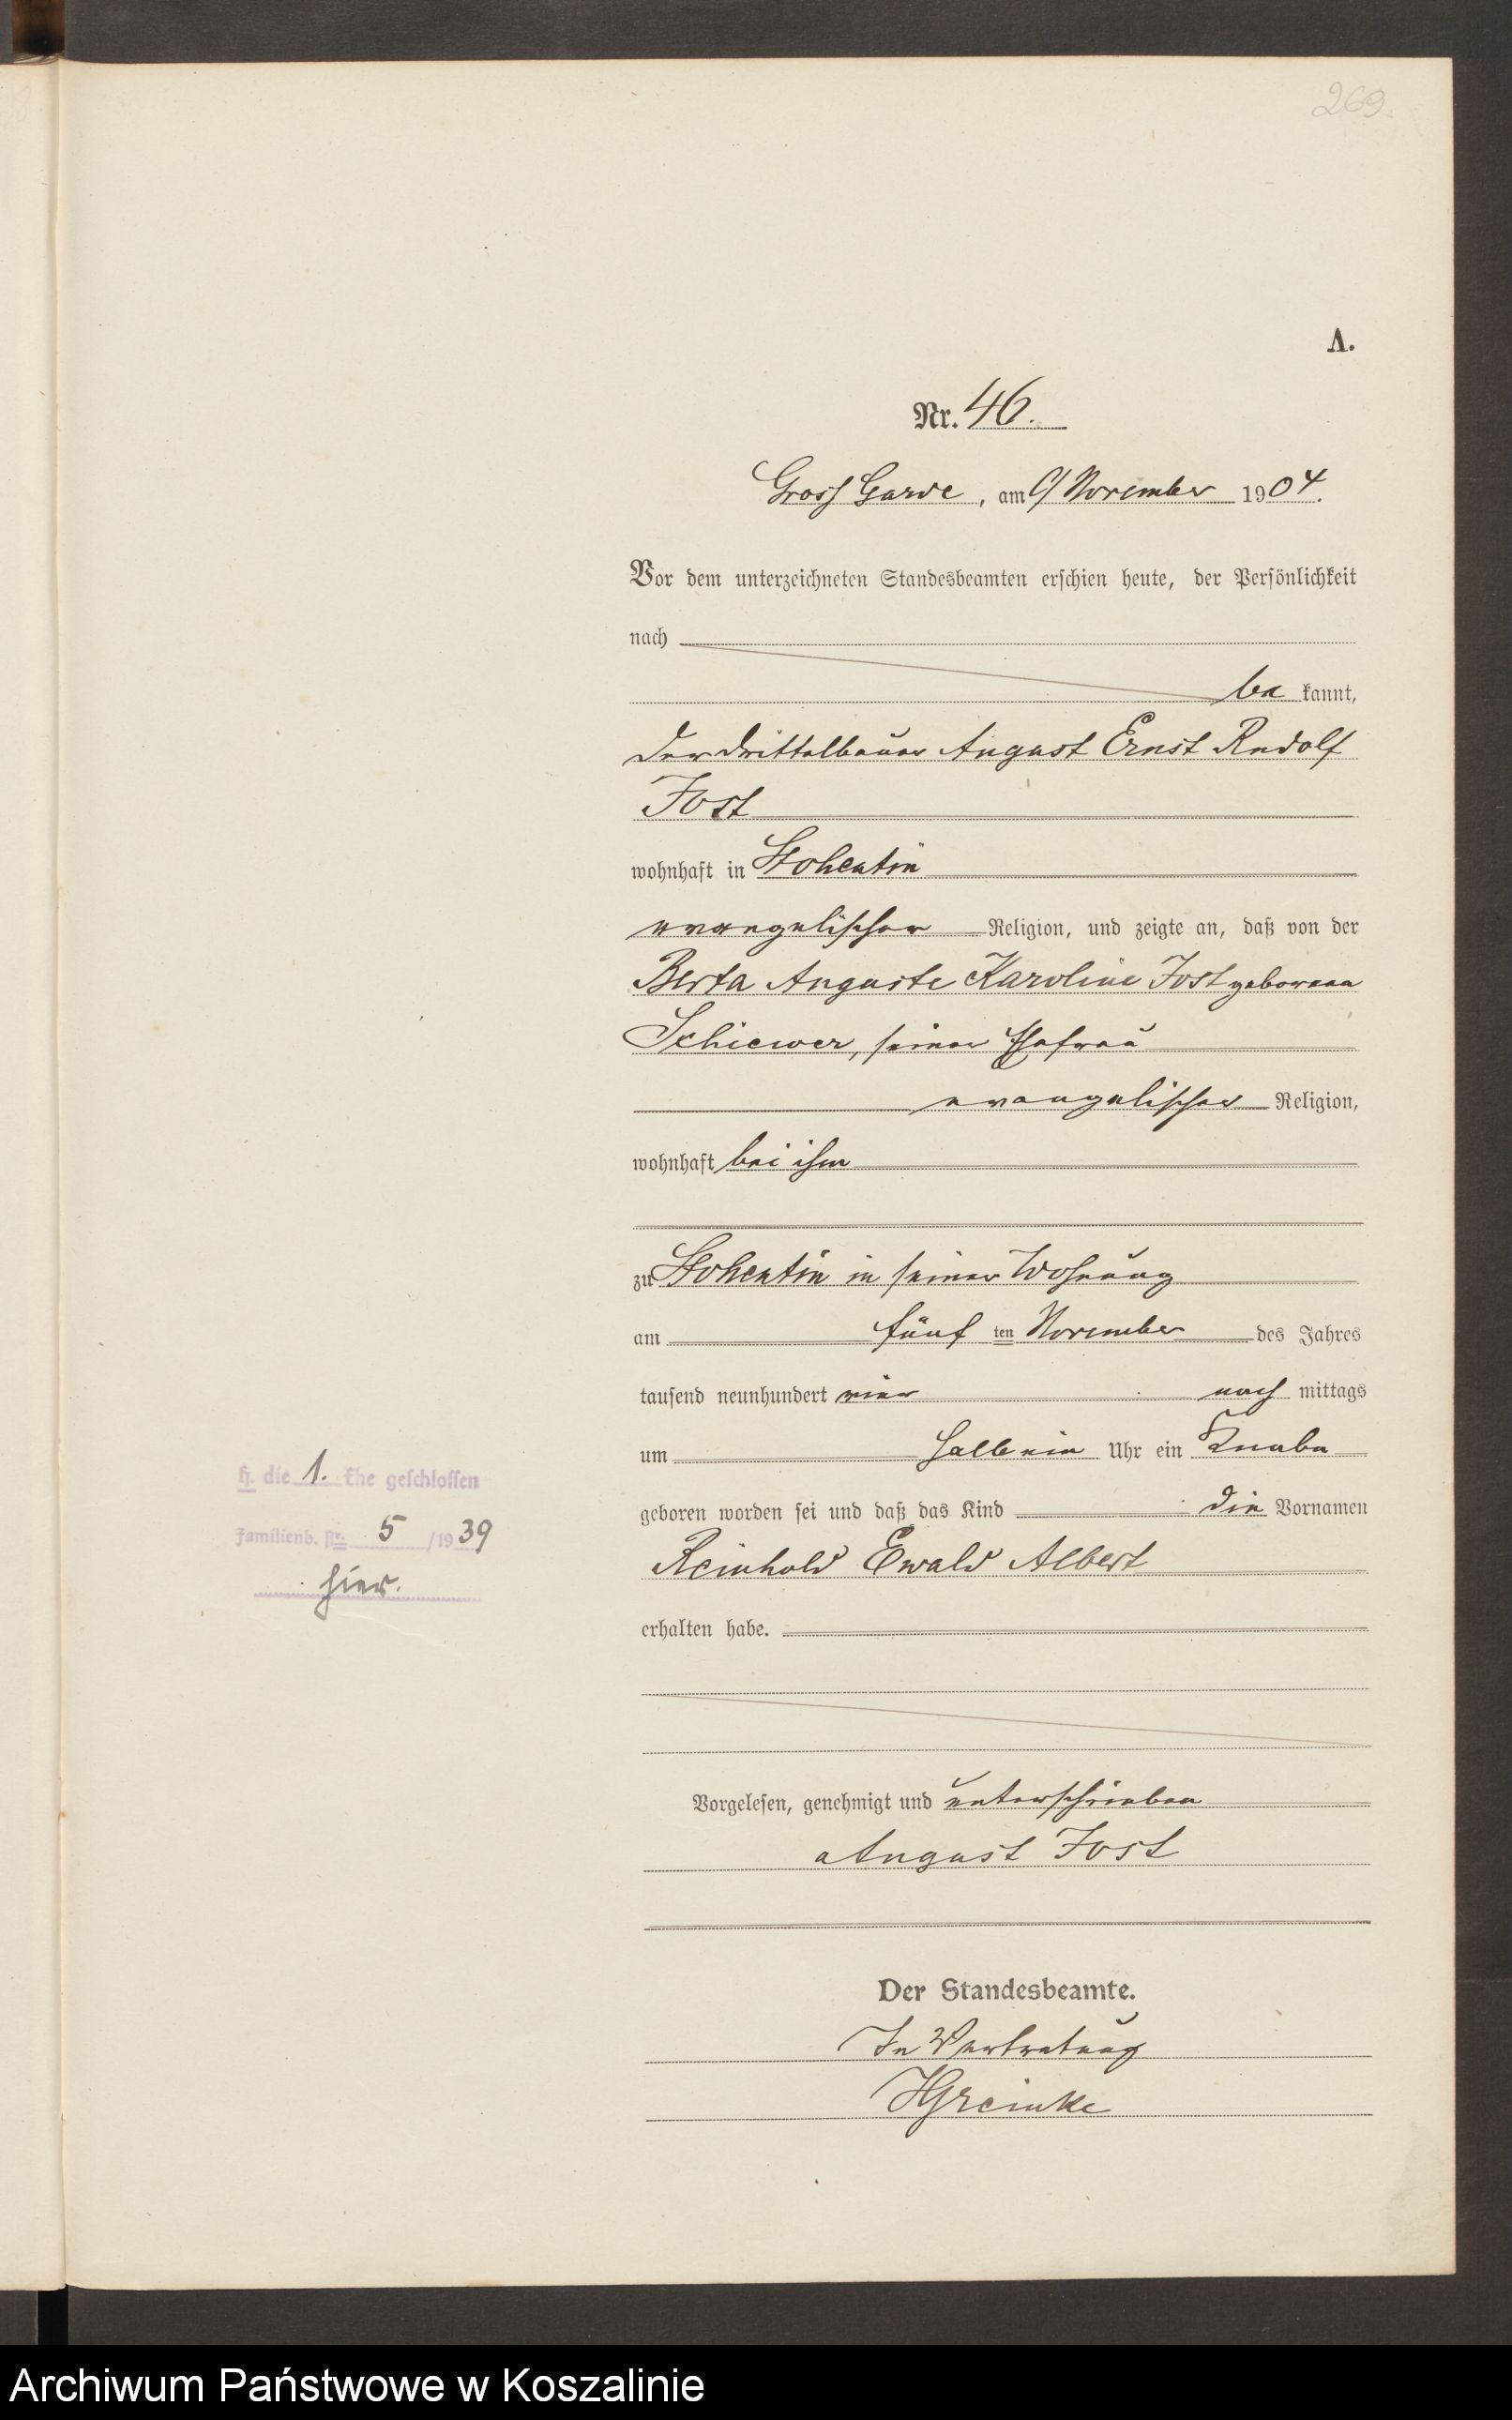 269.
A.
Nr. 46.
Gross Garde, am 9 November 1904.
Vor dem unterzeichneten Standesbeamten erschien heute, der Persönlichkeit
nach
be kannt,
der Drittelbauer August Ernst Rudolf
Jost
wohnhaft in Stohentin
evangelischer Religion, und zeigte an, daß von der
Berta Auguste Karoline Jost geborenen
Schiewer, seiner Ehefrau
evangelischer Religion,
wohnhaft bei ihm
zu Stohentin in seiner Wohnung
am fünf ten November des Jahres
tausend neunhundert vier nach mittags
um halb ein Uhr ein Knabe
geboren worden sei und daß das Kind die Vornamen
Reinhold Ewald Albert
erhalten habe.
Vorgelesen, genehmigt und unterschrieben
August Jost
Der Standesbeamte.
In Vertretung
HGreinke
H. die 1. Ehe geschlossen
Familienb. Nr. 5 /1939
hier.
Archiwum Państwowe w Koszalinie